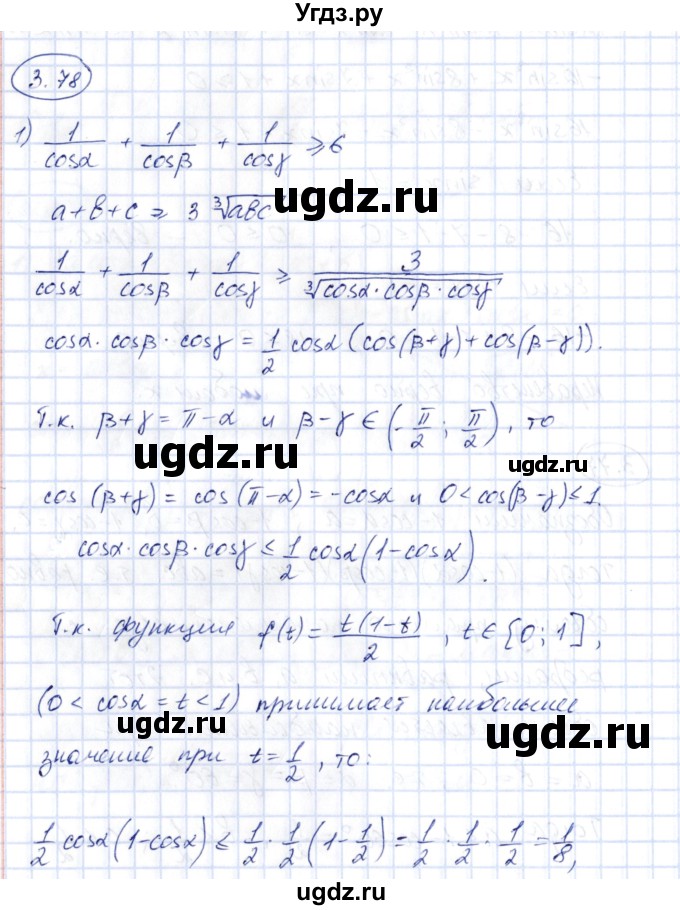 Угдз.ру
3.78
1) 1/cosα + 1/cosβ + 1/cosγ ⩾ 6
a+b+c ⩾ 3 ∛abc
ugdz.ru
1/cosα + 1/cosβ + 1/cosγ ⩾ 3/∛(cosα·cosβ·cosγ)
ugdz.ru
cosα·cosβ·cosγ = 1/2 cosα (cos(β+γ)+cos(β-γ)).
Т.к. β+γ = π-α и β-γ ∈ (-π/2; π/2), то
ugdz.ru
ugdz.ru
cos (β+γ) = cos (π-α) = -cosα и 0<cos(β-γ)≤1.
cosα·cosβ·cosγ ≤ 1/2 cosα(1-cosα).
ugdz.ru
ugdz.ru
Т.к. функция f(t) = t(1-t)/2, t ∈ [0; 1],
(0 < cosα = t < 1) принимает наибольшее
ugdz.ru
ugdz.ru
значение при t = 1/2, то:
1/2 cosα(1-cosα) ≤ 1/2 · 1/2 (1-1/2) = 1/2 · 1/2 · 1/2 = 1/8,
ugdz.ru
ugdz.ru